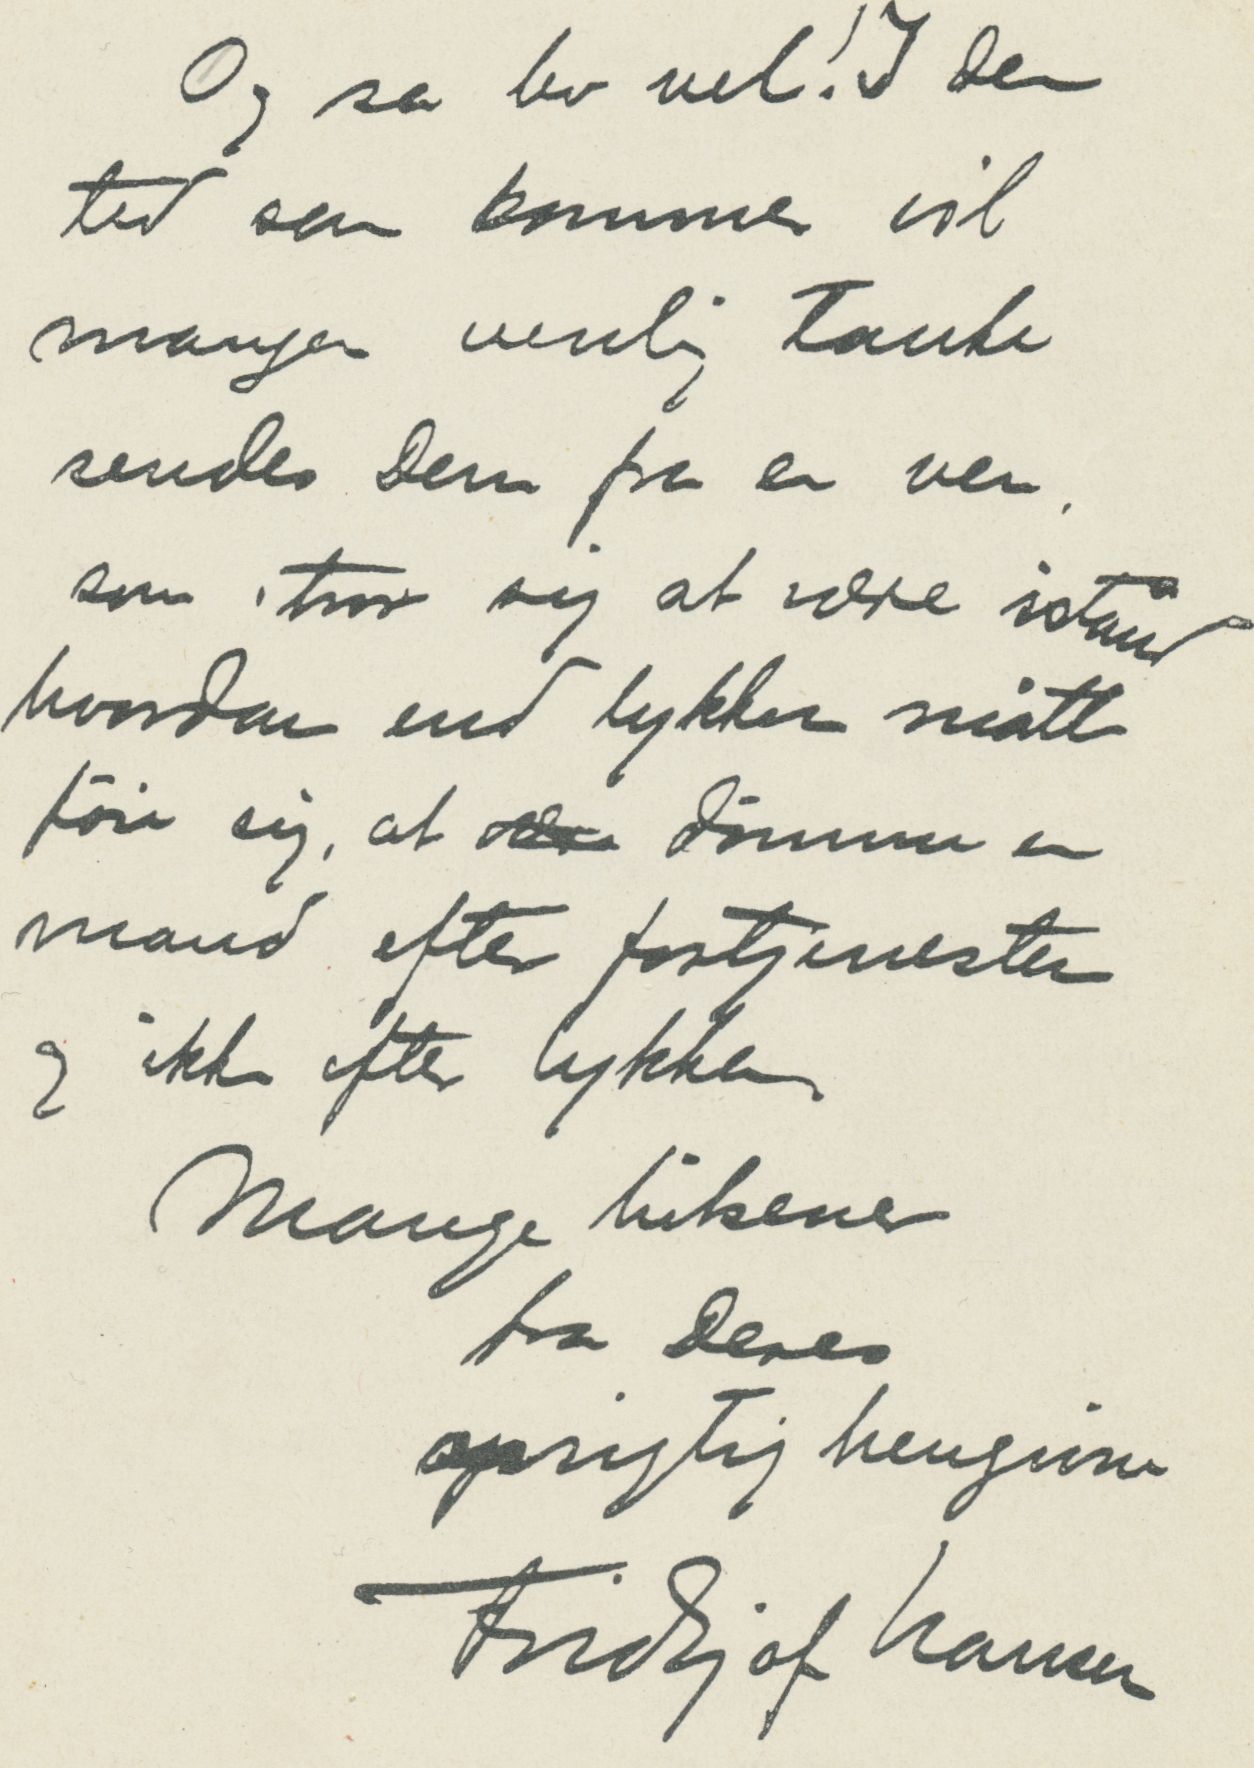 Og så lev vel! I den
tid som kommer vil
mangen venlig tanke
sendes Dem fra en ven,
som tror sig at være istånd
hvordan end lykken måtte
föie sig, at dömme en
mand efter fortjenesten
og ikke efter lykken.
Mange hilsener
fra Deres
oprigtig hengivne
Fridtjof Nansen